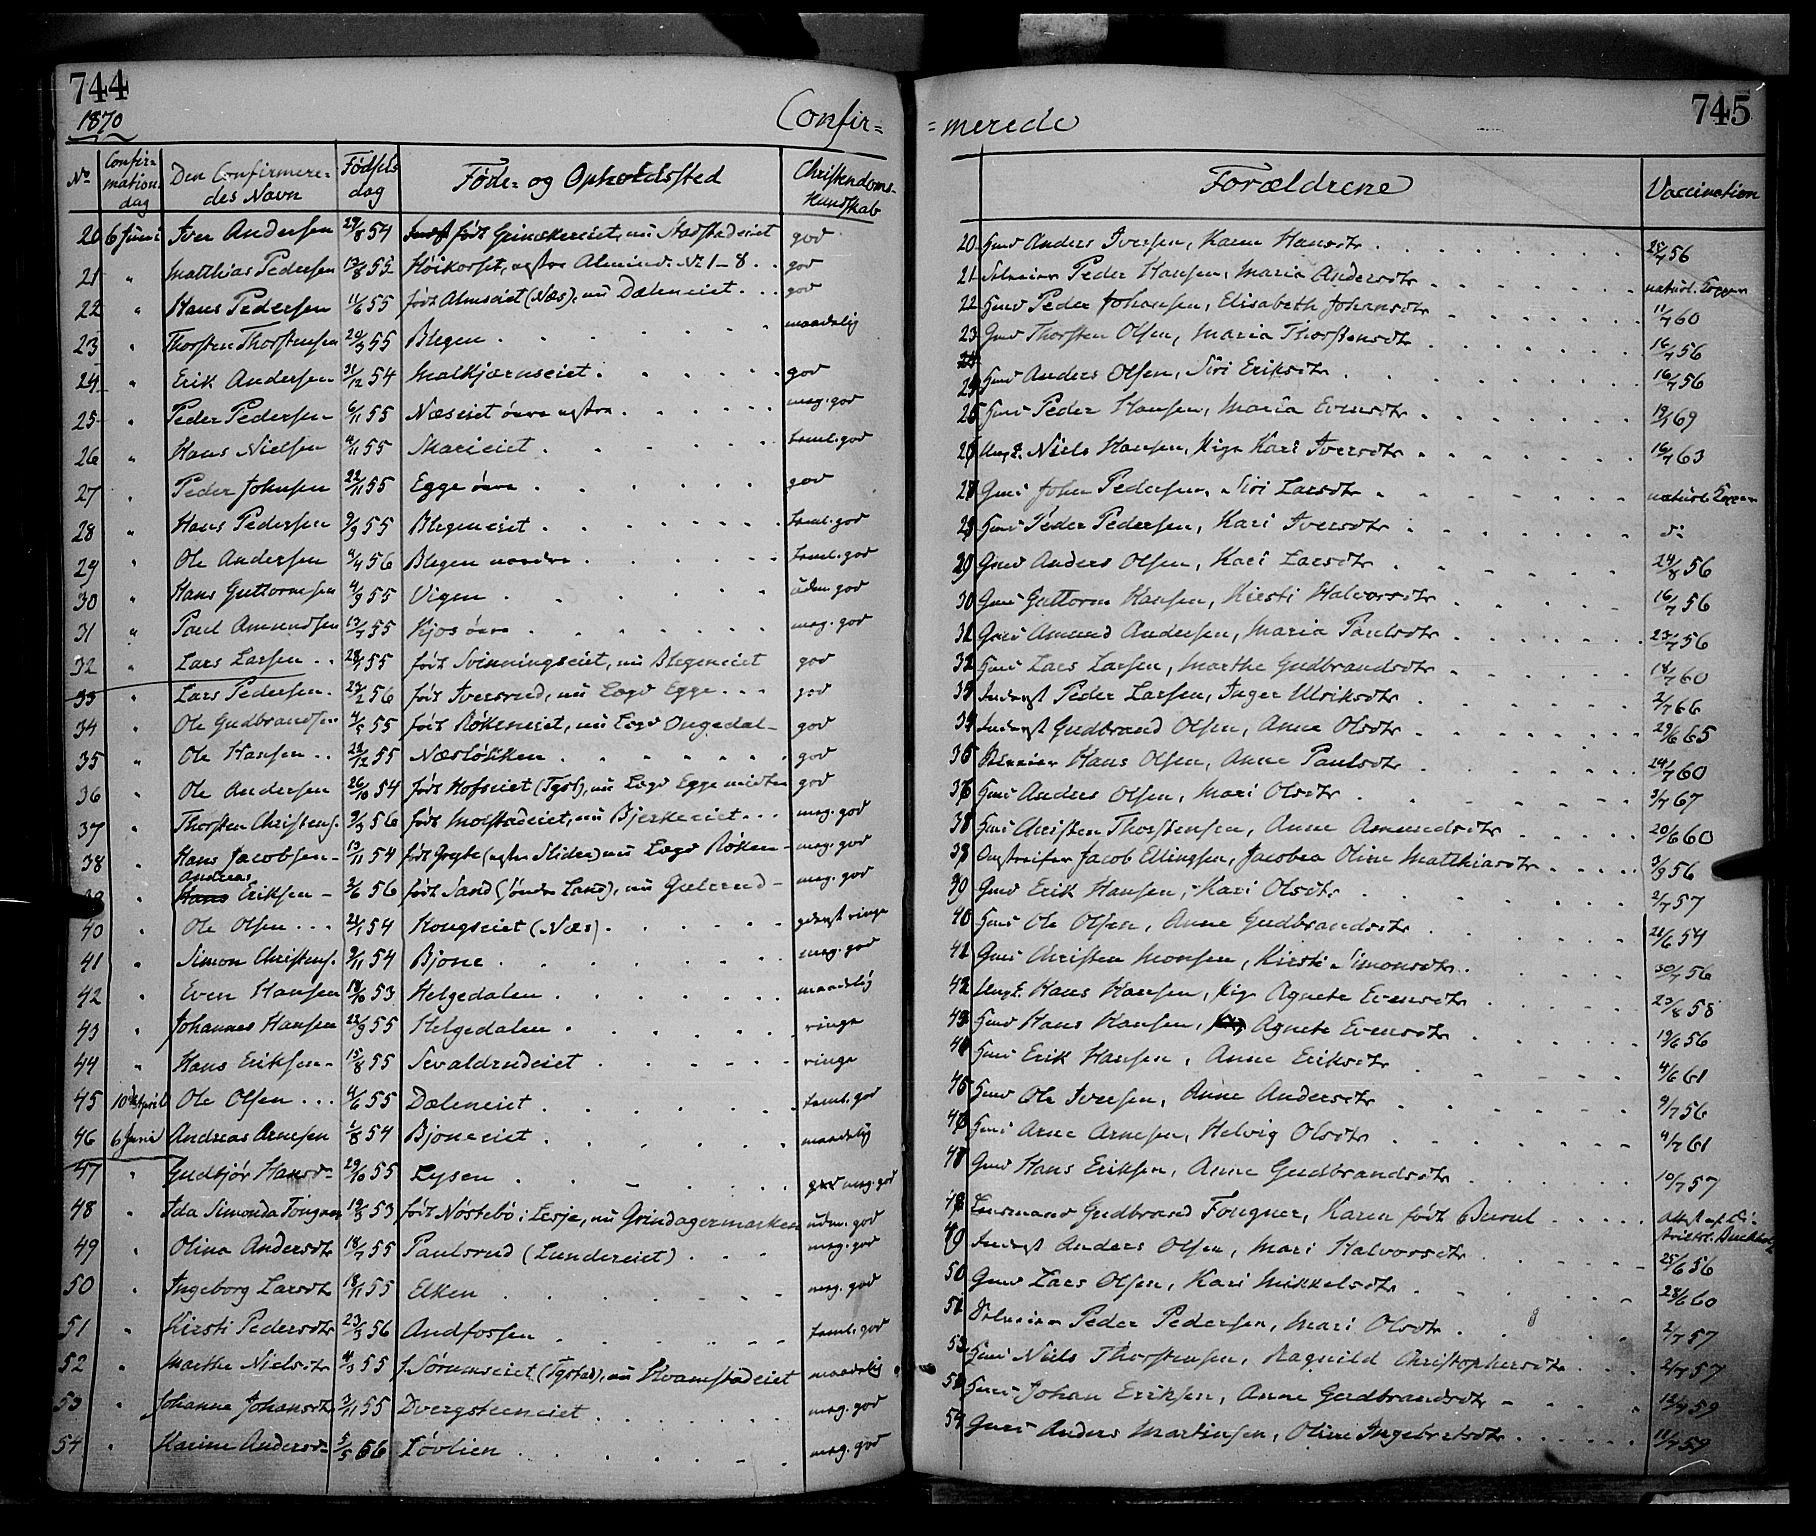 744
1870
Confir=
No Confir=mations dag Den Confirmere=des Navn Fødsels dag Føde- og Opholdssted Christendoms-Kundskab
20 6 Juni Iver Andersen 29/8 54 født Grinakereiet, nu Næstadeiet god
21 " Matthias Pedersen 13/8 55 Høikorset, Almind. Nr 1-8 . . god
22 " Hans Pedersen 11/6 55 født Almseiet (Næs), nu Dæleneiet . . . god
23 " Thorsten Thorstensen 20/3 55 Blegen . . . maadelig
24 " Erik Andersen 31/12 54 Malkjærnseiet . god
25 " Peder Pedersen 6/11 55 Næseiet øvre . . . meg. god
26 " Hans Nielsen 4/11 55 Skarieiet . . . teml. god
27 " Peder Johnsen 22/11 55 Egge øvre . . . god
28 " Hans Pedersen 9/3 55 Blegeneiet . . . teml. god
29 " Ole Andersen 4/4 56 Blegen nordre . . . teml. god
30 " Hans Guttormsen 4/3 55 Vigen . . . udm. god
31 " Paul Amundsen 13/7 55 Kjos øvre . . . meg. god
32 " Lars Larsen . . 28/1 55 født Svinningseiet, nu Blegeneiet god
33 " Lars Pedersen . 23/2 56 født Iversrud, nu Lægd Egge . . . god
34 " Ole Gudbrandsen 4/5 55 født Røkeneiet, nu Lægd Ongedal - god
35 " Ole Hansen . . 28/12 55 Næsløkken . . . god
36 " Ole Andersen 26/10 54 født Hofseiet (Tgst), nu Lægd Egge midtre god
37 " Thorsten Christens. 9/3 56 født Molstadeiet, nu Bjerkeeiet . . . meg. god
38 " Hans Jacobsen - 13/11 54 født Gryte (Slidre) nu Lægd Røken - meg. god
39 " Andreas Hans Eriksen - 3/6 56 født Sand (søndre Land), nu Gulerud - meg. god
40 " Ole Olsen . . . 21/1 54 Kongseiet (Næs) . . . ringe
41 " Simon Christens. 9/11 54 Bjone . . . meg. god
42 " Even Hansen 18/10 53 Helgedalen . . . maadelig
43 " Johannes Hansen 22/9 55 Helgedalen . . . ringe
44 " Hans Eriksen - 15/8 55 Sevaldrudeiet . . . ringe
45 10de April Ole Olsen . . . 4/6 55 Dæleneiet . . . teml. god
46 6 Juni Andreas Arnesen 1/8 54 Bjoneeiet . . . maadelig
47 " Gudbjør Hansd. 29/10 55 Lysen . . . god meg. god
48 " Ida Simonda Fougner 19/3 53 født Nostebø i Lesje, nu Grindagermarken udm. god
49 " Olina Andersdtr 18/7 55 Paulsrud (Lundereiet) . . . meg. god
50 " Ingeborg Larsdtr 18/1 55 Elken . . . meg. god
51 " Kirsti Pedersdtr 23/3 56 Andfossen . . . teml. god
52 " Marthe Nielsdtr 4/3 55 f. Sørumseiet (Tgstad), nu Kvamstadeiet maadelig
53 " Johanne Johansdtr 3/11 55 Dvergsteneiet . . . meg. god
54 " Karine Andersd. 5/5 56 Løvlien . . . meg. god
745
=merede
Forældrene Vaccination
20 Gmd Anders Iversen, Karen Hansdtr . . . 25/7 56
21 Selveier Peder Hansen, Maria Andersdtr . . . naturl. Kopper
22 Hmd Peder Johansen, Elisabeth Johansdtr . . . 11/7 60
23 Gmd Thorsten Olsen, Maria Thorstensdtr . . . 16/7 56
24 Hmd Anders Olsen, Siri Eriksdtr . . . 16/7 56
25 Hmd Peder Hansen, Maria Evensdtr . . . 19/7 69
26 Ungk. Niels Hansen, Pige Kari Iversdtr . . . 16/7 63
27 Gmd John Pedersen, Siri Larsdtr . . . naturl. Kopper
28 Hmd Peder Pedersen, Kari Iversdtr . . . do
29 Gmd Anders Olsen, Kari Larsdtr . . . 24/8 56
30 Gmd Guttorm Hansen, Kirsti Halvorsdtr . . . 16/7 56
31 Gmd Amund Andersen, Maria Paulsdtr . . . 23/7 56
32 Hmd Lars Larsen, Marthe Gudbrandsdtr . . . 18/7 60
33 Inderst Peder Larsen, Inger Ulriksdtr . . . 2/7 66
34 Inderst Gudbrand Olsen, Anne Olsdtr . . . 29/6 65
35 Hans Olsen, Anne Paulsdtr . . . 24/7 60
36 Hmd Anders Olsen, Mari Olsdtr . . . 3/7 67
37 Hmd Christen Thorstensen, Anne Amundsdtr . . . 20/6 60
38 Omstreifer Jacob Ellingsen, Jacobea Oline Matthiasdtr . . . 3/9 56
39 Gmd Erik Hansen, Kari Olsdtr . . . 2/7 57
40 Hmd Ole Olsen, Anne Gudbrandsdtr . . . 21/6 54
41 Gmd Christen Monsen, Kirsti Simonsdtr . . . 30/7 56
42 Ungk. Hans Hansen, Pige Agnete Evensdtr . . . 23/8 58
43 Hmd Hans Hansen, Agnete Evensdtr . . . 19/6 56
44 Hmd Erik Hansen, Anne Eriksdtr . . . 4/6 61
45 Hmd Ole Iversen, Anne Andersdtr . . . 9/7 56
46 Hmd Arne Arnesen, Helvig Olsdtr . . . 4/7 61
47 Gmd Hans Eriksen, Anne Gudbrandsdtr . . . 10/7 57
48 Lensmand Gudbrand Fougner, Karen født . . . Attest af Di-
49 Inderst Anders Olsen, Mari Halvorsdtr . . . 25/6 56
50 Gmd Lars Olsen, Kari Mikkelsdtr . . . 28/6 60
51 Selveier Peder Pedersen, Mari Olsdtr . . . 2/7 57
52 Hmd Niels Thorstensen, Ragnild Christophersdtr . . . 2/7 57
53 Hmd Johan Eriksen, Anne Gudbrandsdtr . . . 12/7 59
54 Gmd Anders Martinsen, Oline Ingebretsdtr . . . 11/7 59